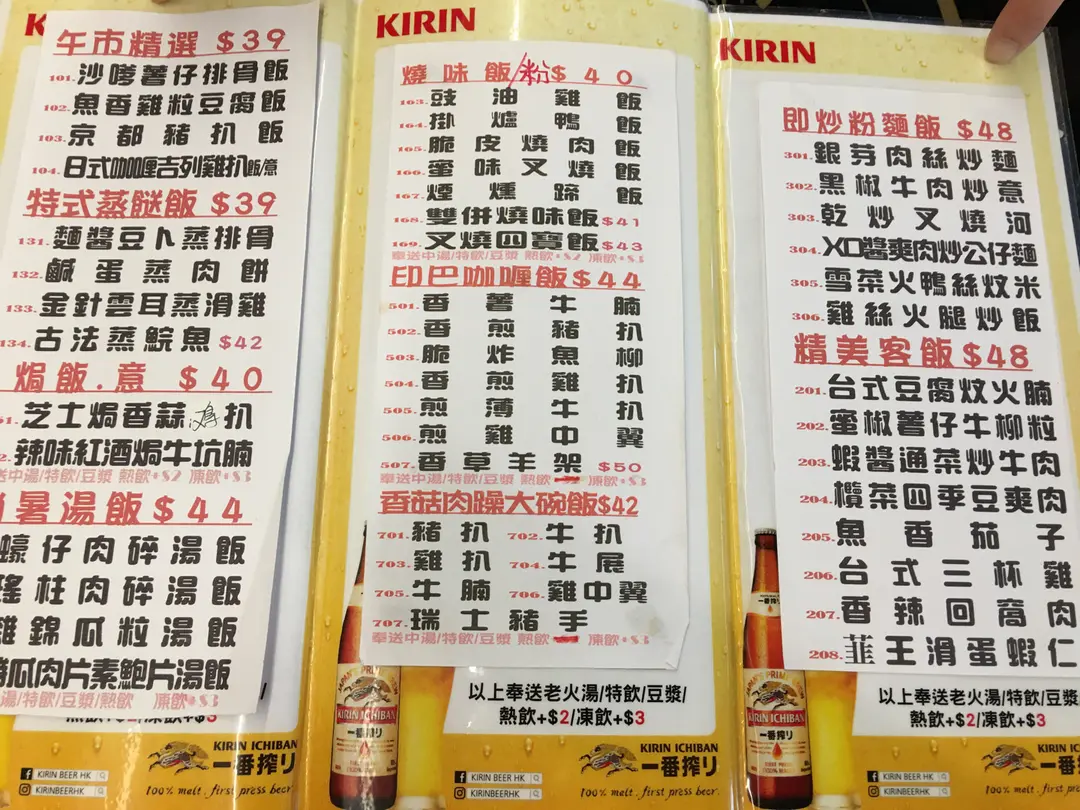 KIRIN
午市精選 $39
101.沙嗲薯仔排骨飯
102.魚香雞粒豆腐飯
103.京都豬扒飯
104.日式咖喱吉列雞扒飯/意
特式蒸餸飯 $39
131.麵醬豆卜蒸排骨
132.鹹蛋蒸肉餅
133.金針雲耳蒸滑雞
134.古法蒸鯇魚 $42
焗飯.意 $40
芝士焗香蒜鴻扒
辣味紅酒焗牛坑腩
送中湯/特飲/豆漿 熱飲+$2 凍飲+$3
暑湯飯 $44
蠔仔肉碎湯飯
瑤柱肉碎湯飯
雞錦瓜粒湯飯
瓜肉片素鮑片湯飯
湯/特飲/豆漿/熱飲 凍飲+$3
熱飲+$2/凍飲+$3
KIRIN ICHIBAN
一番搾り
KIRIN BEER HK
KIRINBEERHK
100% malt. first press beer.
KIRIN
燒味飯/粉 $40
163.豉油雞飯
164.掛爐鴨飯
165.脆皮燒肉飯
166.蜜味叉燒飯
167.煙燻蹄飯
168.雙併燒味飯 $41
169.叉燒四寶飯 $43
奉送中湯/特飲/豆漿 熱飲+$2 凍飲+$3
印巴咖喱飯 $44
501.香薯牛腩
502.香煎豬扒
503.脆炸魚柳
504.香煎雞扒
505.煎薄牛扒
506.煎雞中翼
507.香草羊架 $50
奉送中湯/特飲/豆漿 熱飲+$2 凍飲+$3
香菇肉躁大碗飯$42
701.豬扒 702.牛扒
703.雞扒 704.牛展
705.牛腩 706.雞中翼
707.瑞士豬手
奉送中湯/特飲/豆漿 熱飲+$2 凍飲+$3
以上奉送老火湯/特飲/豆漿/
熱飲+$2/凍飲+$3
KIRIN ICHIBAN
一番搾り
KIRIN BEER HK
KIRINBEERHK
100% malt. first press beer.
JAPAN'S PRIME BREW
KIRIN ICHIBAN
一番搾り
KIRIN
即炒粉麵飯 $48
301.銀芽肉絲炒麵
302.黑椒牛肉炒意
303.乾炒叉燒河
304.XO醬爽肉炒公仔麵
305.雪菜火鴨絲炆米
306.雞絲火腿炒飯
精美客飯 $48
201.台式豆腐炆火腩
202.蜜椒薯仔牛柳粒
203.蝦醬通菜炒牛肉
204.欖菜四季豆爽肉
205.魚香茄子
206.台式三杯雞
207.香辣回窩肉
208.韮王滑蛋蝦仁
以上奉送老火湯/特飲/豆漿
熱飲+$2/凍飲+$3
KIRIN IC
一番搾
KIRIN BEER HK
KIRINBEERHK
100% malt. first press be
KIRIN ICHIBAN
一番搾り